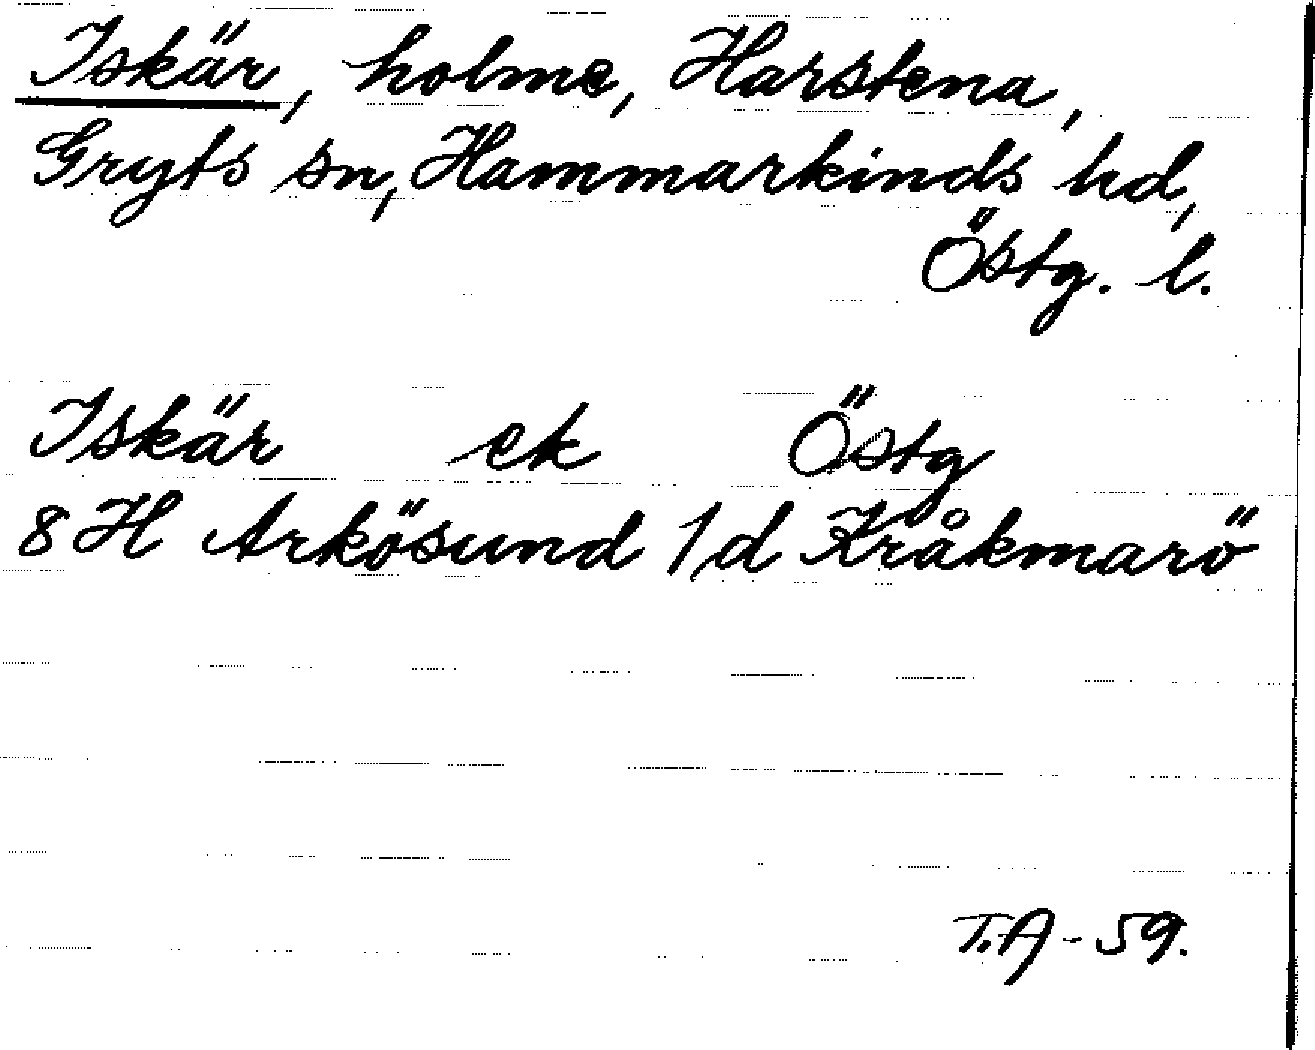 Iskär, holme, Harstena,
Gryts sn, Hammarkinds hd,
Östg. l.
Iskär ek Östg
8 H Arkösund 1d Kråkmarö
T.A - 59.